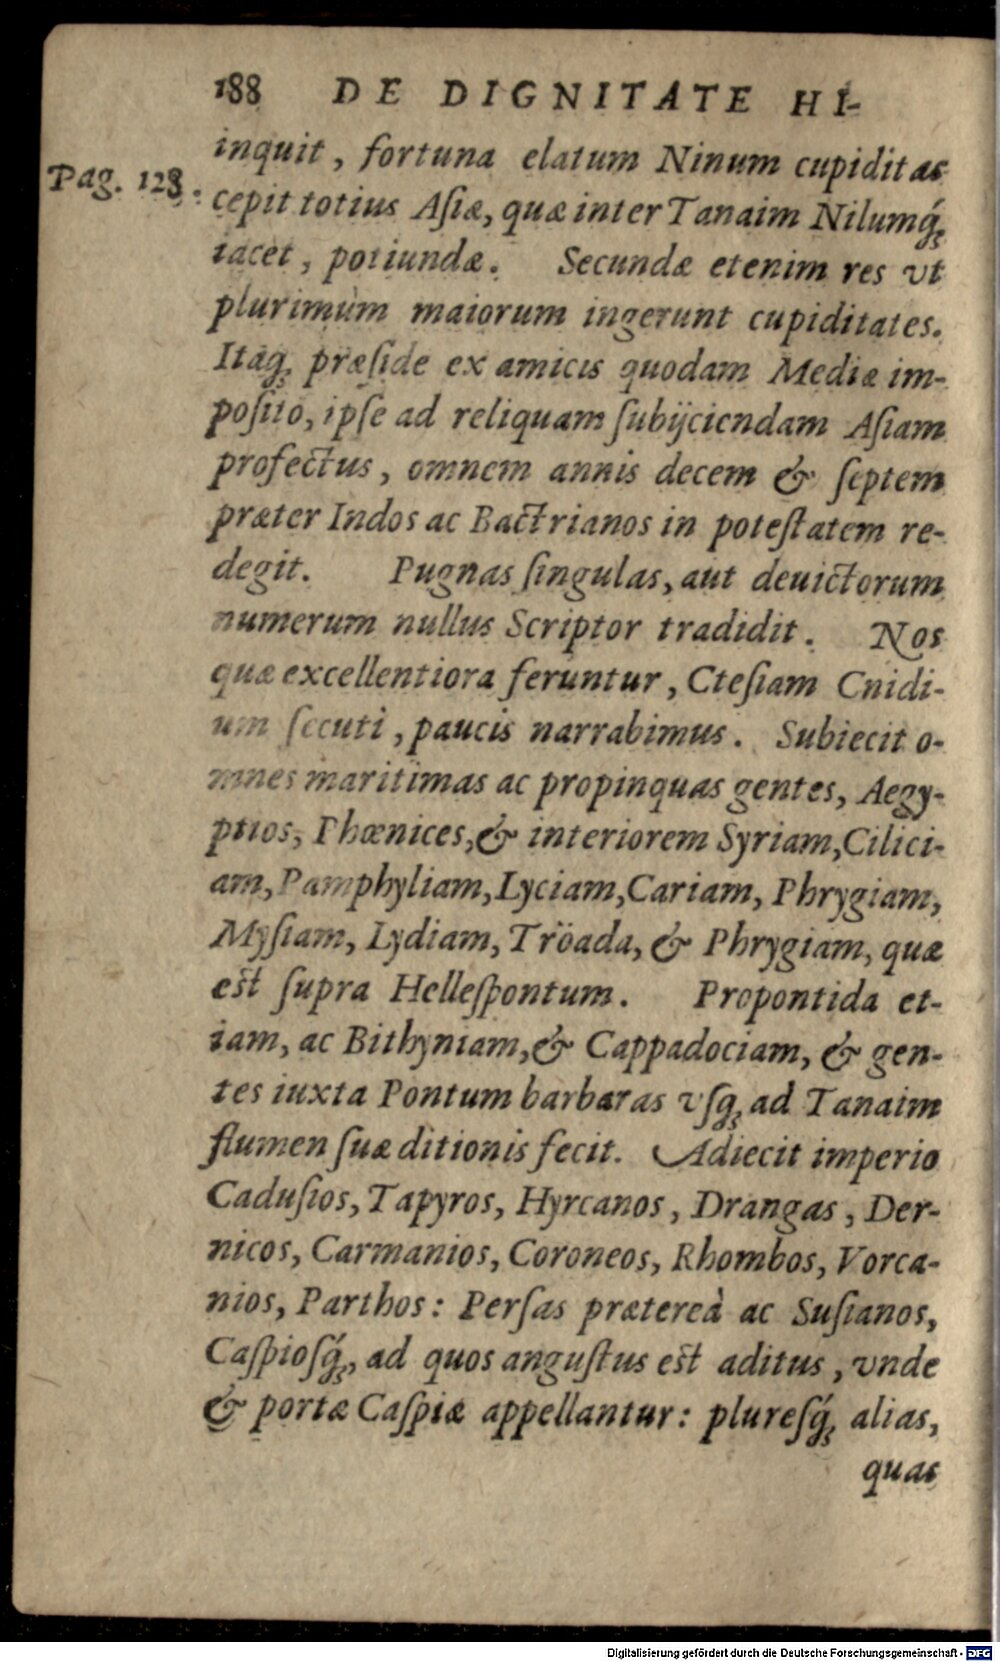 188 DE DIGNITATE HI-
inquit, fortuna elatum Ninum cupiditas
Pag. 128.
cepit totius Aſiæ, quæ inter Tanaim Nilumq́;
iacet, potiundæ. Secundæ etenim res vt
plurimùm maiorum ingerunt cupiditates.
Itaq; præſide ex amicis quodam Mediæ im-
poſito, ipſe ad reliquam ſubijciendam Aſiam
profectus, omnem annis decem & ſeptem
præter Indos ac Bactrianos in poteſtatem re-
degit. Pugnas ſingulas, aut deuictorum
numerum nullus Scriptor tradidit. Nos
quæ excellentiora feruntur, Cteſiam Cnidi-
um ſecuti, paucis narrabimus. Subiecit o-
mnes maritimas ac propinquas gentes, Aegy-
ptios, Phœnices, & interiorem Syriam, Cilici-
am, Pamphyliam, Lyciam, Cariam, Phrygiam,
Myſiam, Lydiam, Tröada, & Phrygiam, quæ
eſt ſupra Helleſpontum. Propontida et-
iam, ac Bithyniam, & Cappadociam, & gen-
tes iuxta Pontum barbaras vſq; ad Tanaim
flumen ſuæ ditionis fecit. Adiecit imperio
Caduſios, Tapyros, Hyrcanos, Drangas, Der-
nicos, Carmanios, Coroneos, Rhombos, Vorca-
nios, Parthos: Perſas prætereà ac Suſianos,
Caſpioſq́;, ad quos anguſtus eſt aditus, vnde
& portæ Caſpiæ appellantur: pluresq́; alias,
quas
Digitalisierung gefördert durch die Deutsche Forschungsgemeinschaft - DFG